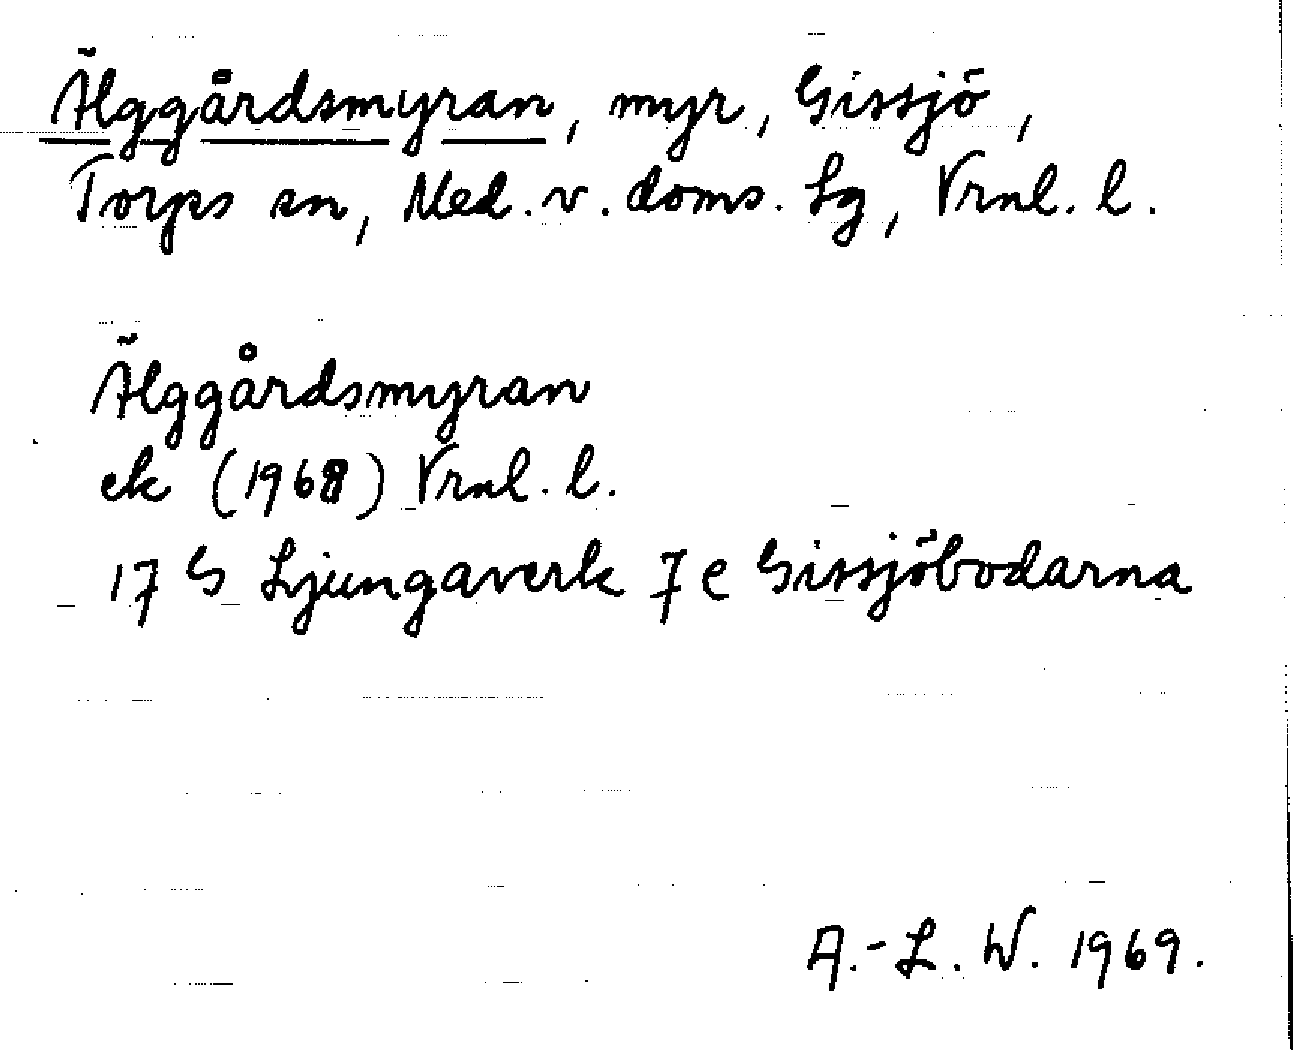 Älggårdsmyran, myr, Gissjö,
Torps sn, Med. v. doms. Lg, Vrnl. l.
Älggårdsmyran
ek (1968) Vrnl. l.
17 G Ljungaverk 7 e Gissjöbodarna
A.-L. W. 1969.